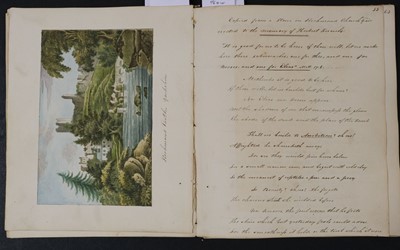 Richmond Castle, Yorkshire
Copied from a Stone in Richmond Church Yard
erected to the memory of Herbert Knowles
"It is good for us to be here: if thou wilt let us make
here three tabernacles: one for thee and one for
Moses and one for Elias" Matt 17
Methinks it is good to be here
If thou wilt let us build but for whom?
Nor Elias nor Moses appear
But the shadows of eve that encompass the gloom
The abode of the dead and the place of the tomb
Shall we build to Ambition? Ah no!
Affrighted he shrinketh away
For see they would pin him below
In a small narrow cave and begirt with cold clay
To the meanest of reptiles a peer and a prey
To Beauty? Ah no! She forgets
The charms which she wielded before
Nor knows the foul worm that he frets
The skin which but yesterday fools could adore
For the smoothness it held or the tint which it wore